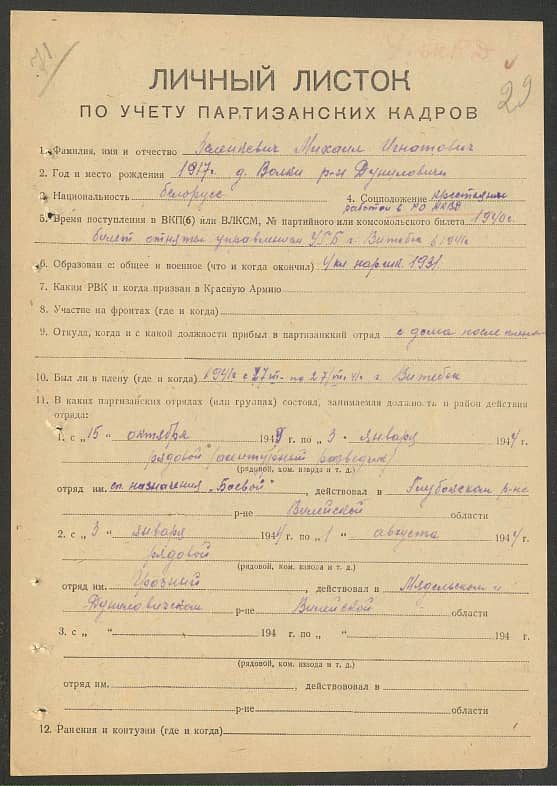 71
29
ЛИЧНЫЙ ЛИСТОК
ПО УЧЕТУ ПАРТИЗАНСКИХ КАДРОВ
1. Фамилия, имя и отчество Михаил Игнатович
2. Год и место рождения 1917г. д. Волки р-н Дуниловичи
3. Национальность белорусс 4. Соцположение крестьянин
работал в РО НКВД
5. Время поступления в ВКП(б) или ВЛКСМ, № партийного или комсомольского билета 1940г.
билет отнятый управлением УГБ г. Витебск в 1941г.
6. Образован с: общее и военное (что и когда окончил) 1931.
7. Каким РВК и когда призван в Красную Армию
8. Участие на фронтах (где и когда)
9. Откуда, когда и с какой должности прибыл в партизанский отряд с дома после плена
10. Был ли в плену (где и когда) 1941г. с по 27/VII-41г. г. Витебск
11. В каких партизанских отрядах (или группах) состоял, занимаемая должность и район действия
отряда:
1. с „15" октября 194 г. по „3" января 1944 г.
рядовой разведчик)
(рядовой, ком. взвода и т. д.)
отряд им. сп. назначения „Боевой", действовал в Глубокском р-не
р-не Вилейской области
2. с „3" января 1944 г. по „1" августа 1944 г.
рядовой
(рядовой, ком. взвода и т. д.)
отряд им. Грозный, действовал в Мядельском и
Дуниловичском р-не Вилейской области
3. с „ " 194 г. по „ " 194 г.
(рядовой, ком. взвода и т. д.)
отряд им. , действововал в
р-не области
12. Ранения и контузии (где и когда)